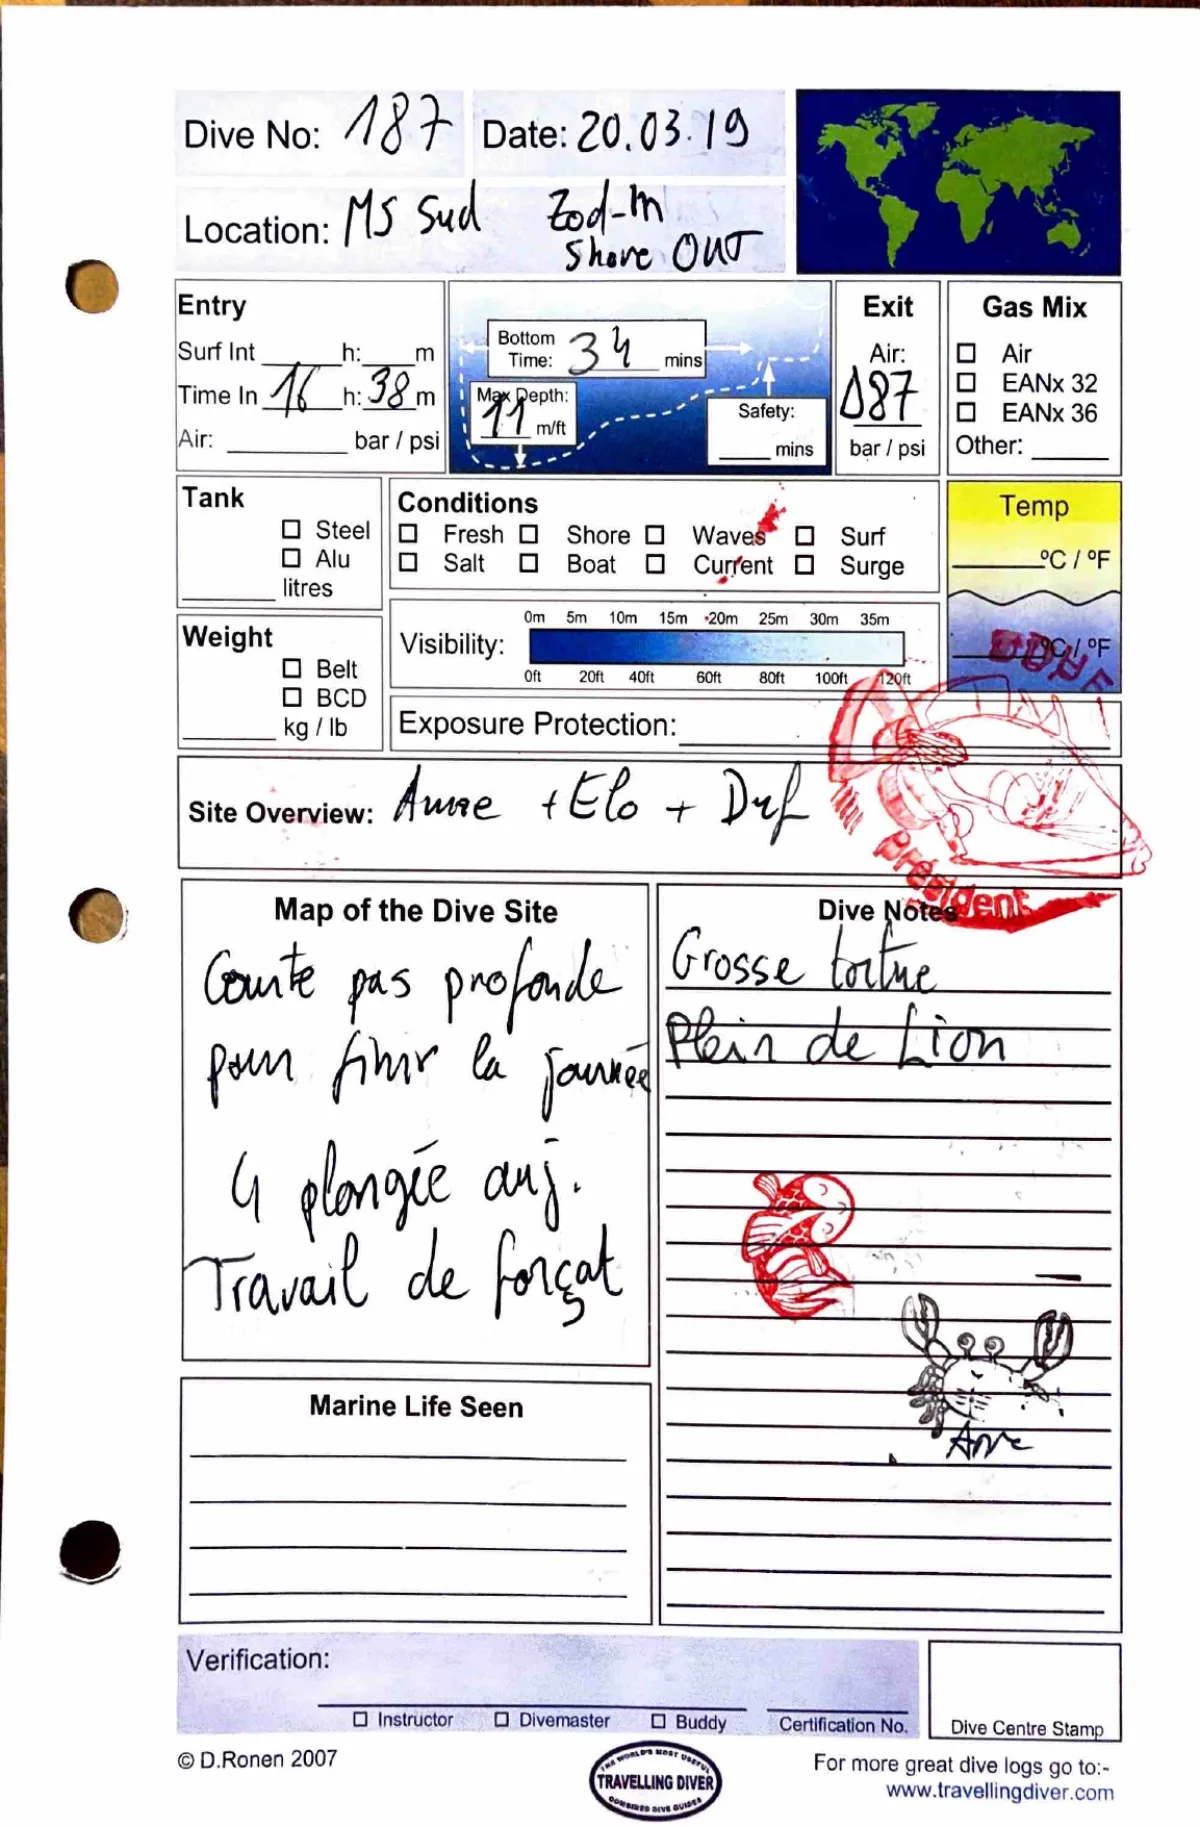 Dive No: 187 Date: 20.03.19
Location: MS Sud Zod-In
Shore OUT
Entry
Surf Int ____ h: ____ m
Time In 16 h: 38 m
Air: ____ bar / psi
Bottom
Time: 34 mins
Max Depth:
11 m/ft
Safety:
____ mins
Exit
Air:
Δ87
bar / psi
Gas Mix
☐ Air
☐ EANx 32
☐ EANx 36
Other: ____
Tank
☐ Steel
☐ Alu
____ litres
Conditions
☐ Fresh ☐ Shore ☐ Waves ☐ Surf
☐ Salt ☐ Boat ☐ Current ☐ Surge
Temp
____ ºC / ºF
____ ºC / ºF
Weight
☐ Belt
☐ BCD
____ kg / lb
Visibility:
0m 5m 10m 15m 20m 25m 30m 35m
0ft 20ft 40ft 60ft 80ft 100ft 120ft
Exposure Protection:
Site Overview: + Elo +
Président
Map of the Dive Site
Courte pas profonde
pour finir la journée
4 plongée auj.
Travail de forçat
Dive Notes
Grosse tortue
Plein de Lion
Marine Life Seen
Verification:
☐ Instructor ☐ Divemaster ☐ Buddy
Certification No.
Dive Centre Stamp
© D.Ronen 2007
THE WORLD'S MOST USEFUL
TRAVELLING DIVER
COMBINED DIVE GUIDES
For more great dive logs go to:-
www.travellingdiver.com